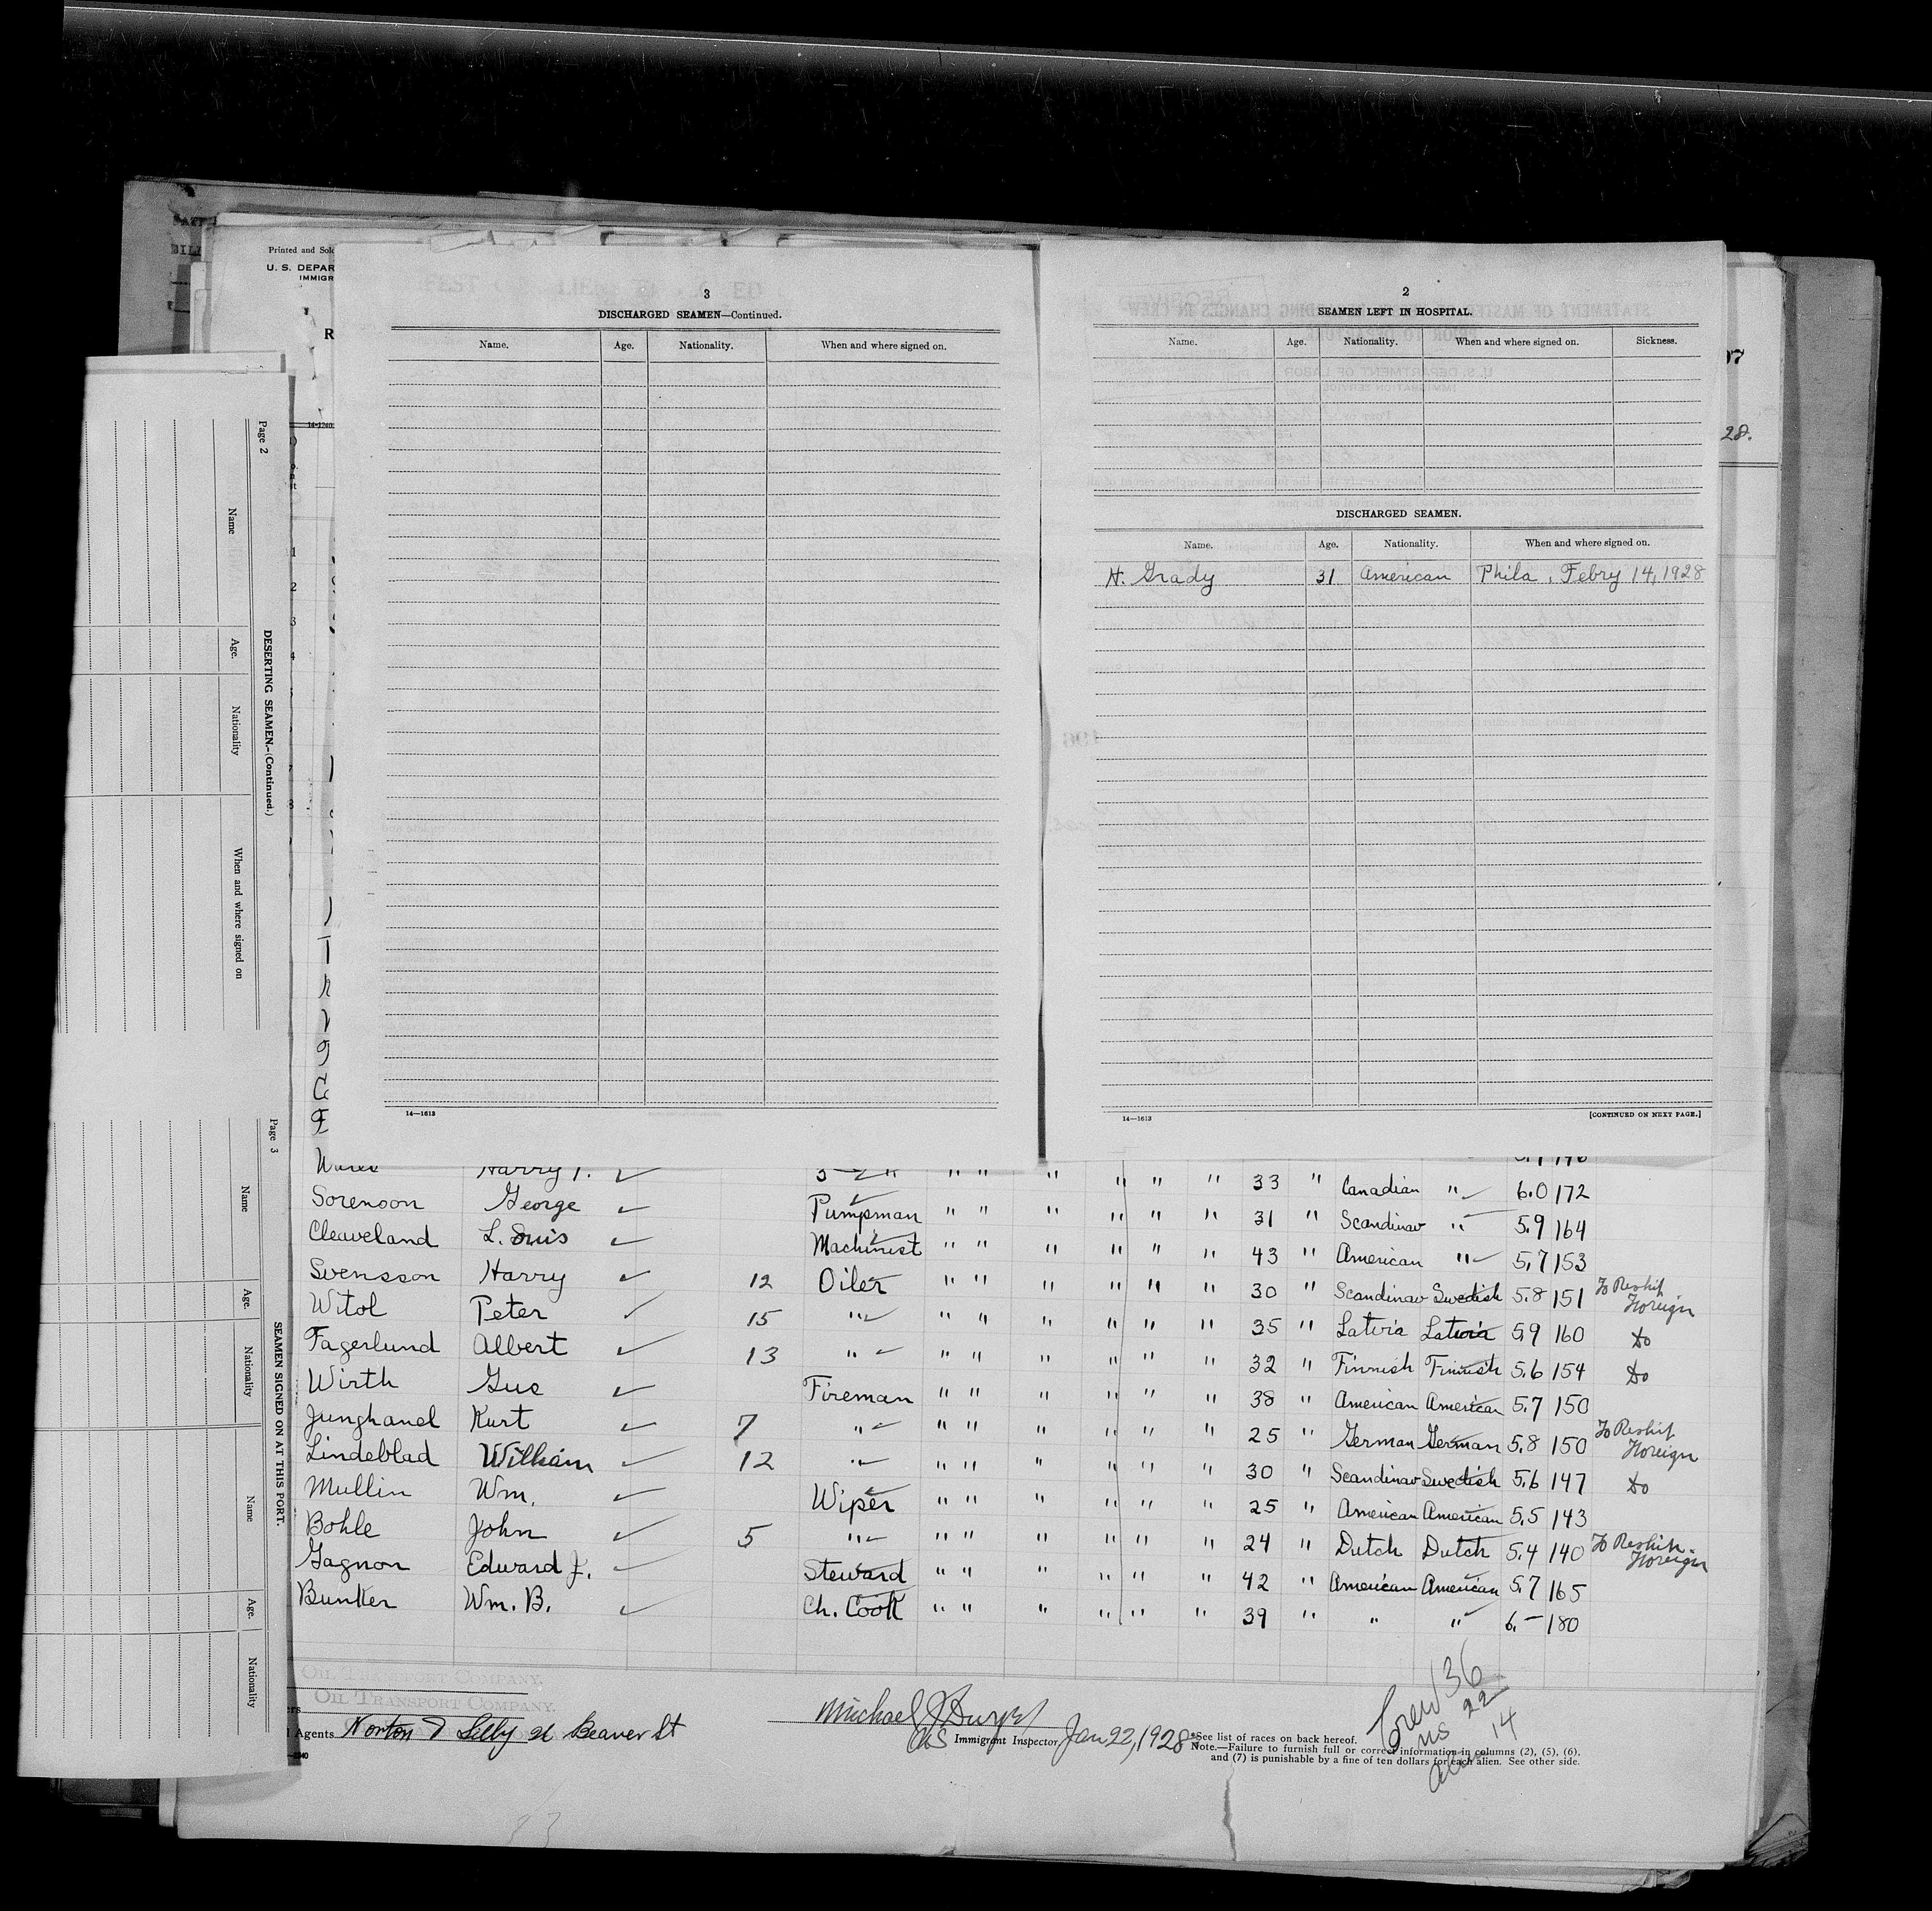 Printed and Sold
U. S. DEPAR
IMMIGR
R
14-1240
3
DISCHARGED SEAMEN—Continued.
Name. Age. Nationality. When and where signed on.
14—1613
2
SEAMEN LEFT IN HOSPITAL.
Name. Age. Nationality. When and where signed on. Sickness.
DISCHARGED SEAMEN.
Name. Age. Nationality. When and where signed on.
H. Grady 31 American Phila, Febry 14, 1928
14—1613
[CONTINUED ON NEXT PAGE.]
28.
Page 2
DESERTING SEAMEN.-(Continued.)
Name Age. Nationality When and where signed on
Page 3
SEAMEN SIGNED ON AT THIS PORT.
Name Age. Nationality Name Age. Nationality
1
2
3
4
Harry 33 " Canadian " 6.0 172
Sorenson George Pumpman " " " " " " 31 " Scandinav " 5.9 164
Cleaveland L. Ouis Machinist " " " " " " 43 " American " 5.7 153
Svensson Harry 12 Oiler " " " " " " 30 " Scandinav Swedish 5.8 151 To Reship Foreign
Witol Peter 15 " " " " " " " 35 " Latvia Latvia 5.9 160 Do
Fagerlund Albert 13 " " " " " " " 32 " Finnish Finnish 5.6 154 Do
Wirth Gus Fireman " " " " " " 38 " American American 5.7 150
Junghanel Kurt 7 " " " " " " " 25 " German German 5.8 150 To Reship Foreign
Lindeblad William 12 " " " " " " " 30 " Scandinav Swedish 5.6 147 Do
Mullin Wm. Wiper " " " " " " 25 " American American 5.5 143
Bohle John 5 " " " " " " " 24 " Dutch Dutch 5.4 140 To Reship Foreign
Gagnon Edward J. Steward " " " " " " 42 " American American 5.7 165
Bunker Wm. B. Ch. Cook " " " " " " 39 " " " 6.— 180
OIL TRANSPORT COMPANY.
OIL TRANSPORT COMPANY.
Agents Norton Lilly 26 Beaver St
Michael
Immigrant Inspector Jan 22, 1928
*See list of races on back hereof.
Note.—Failure to furnish full or correct information in columns (2), (5), (6),
and (7) is punishable by a fine of ten dollars for each alien. See other side.
Crew 36
US 22
Alien 14